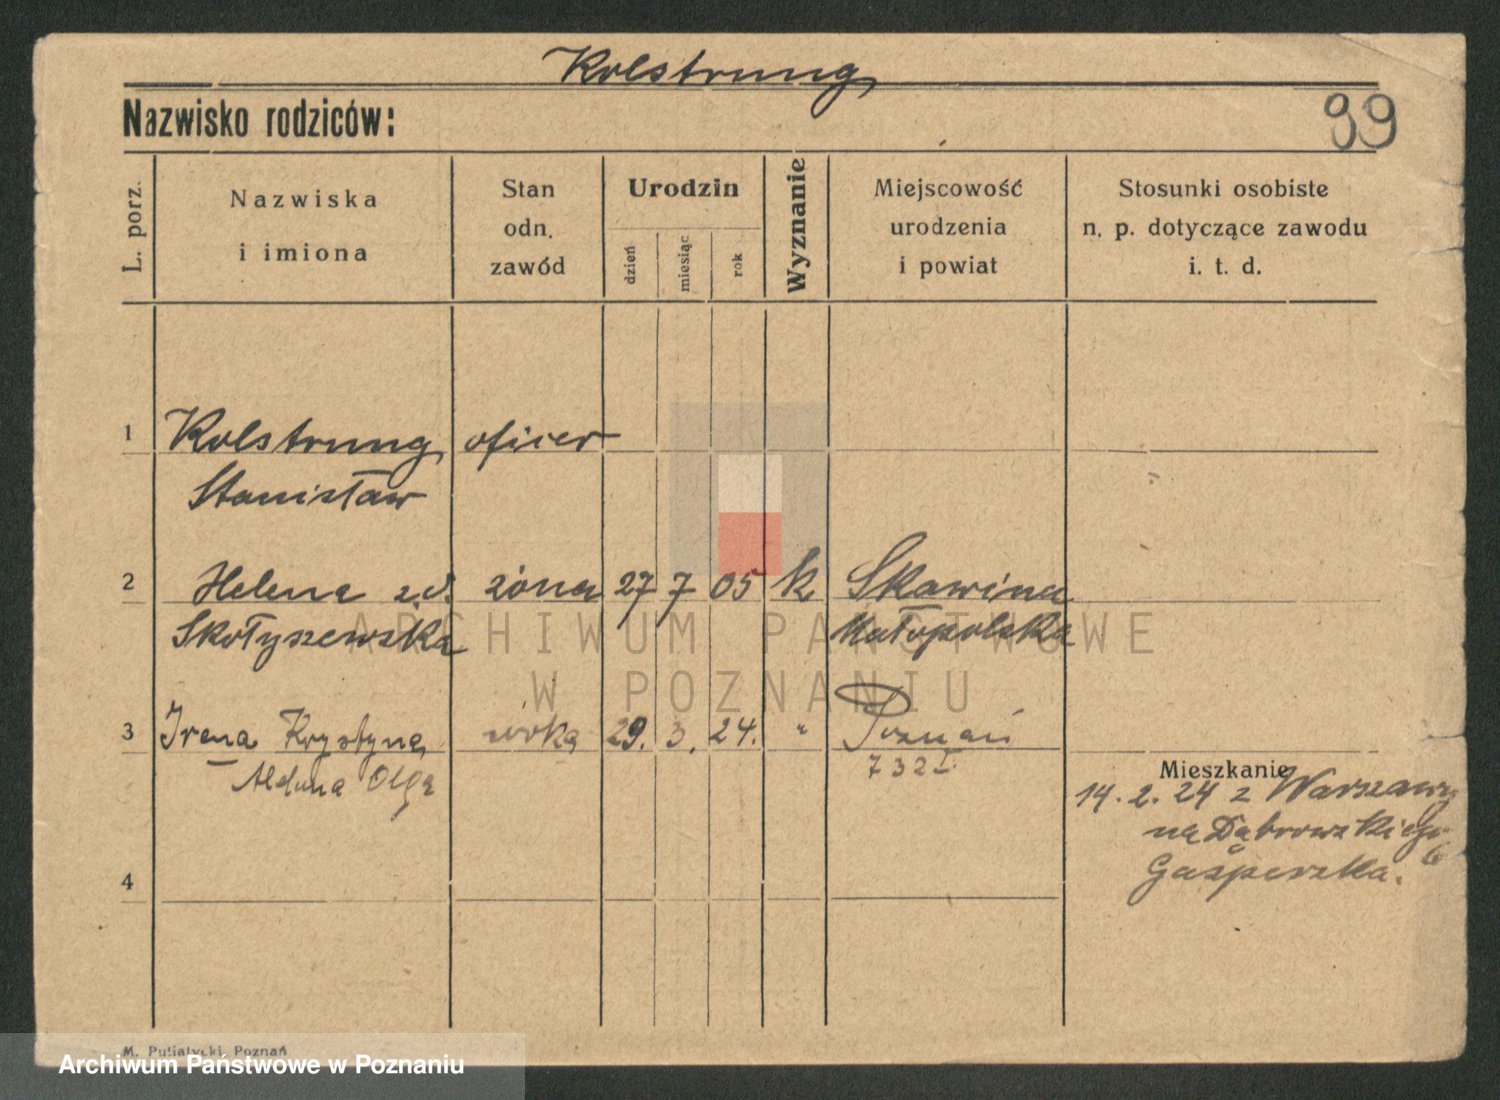 Kolstrung
Nazwisko rodziców:
99
L. porz.
Nazwiska
i imiona
Stan
odn.
zawód
Urodzin
dzień
miesiąc
rok
Wyznanie
Miejscowość
urodzenia
i powiat
Stosunki osobiste
n. p. dotyczące zawodu
i. t. d.
1 Kolstrung oficer
Stanisław
2 Helena z d. żona 27 7 05 k Skawina
Skołyszewska Małopolska
3 Irena Krystyna córka 29. 3. 24. " Poznań
Aldona Olga 732 I.
Mieszkanie
14. 2. 24 z Warszawy
na Dąbrowskiego
6
Gasperska.
4
ARCHIWUM PAŃSTWOWE
W POZNANIU
M. Putiatycki, Poznań
Archiwum Państwowe w Poznaniu